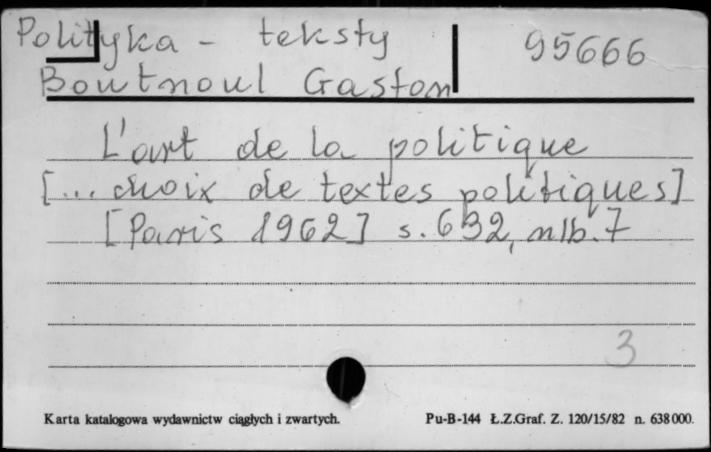 Polityka - teksty 95666
Boutnoul Gaston
L'art de la politique
[... choix de textes politiques]
[Paris 1962] s. 632, nlb. 7
3
Karta katalogowa wydawnictw ciągłych i zwartych. Pu-B-144 Ł.Z.Graf. Z. 120/15/82 n. 638 000.